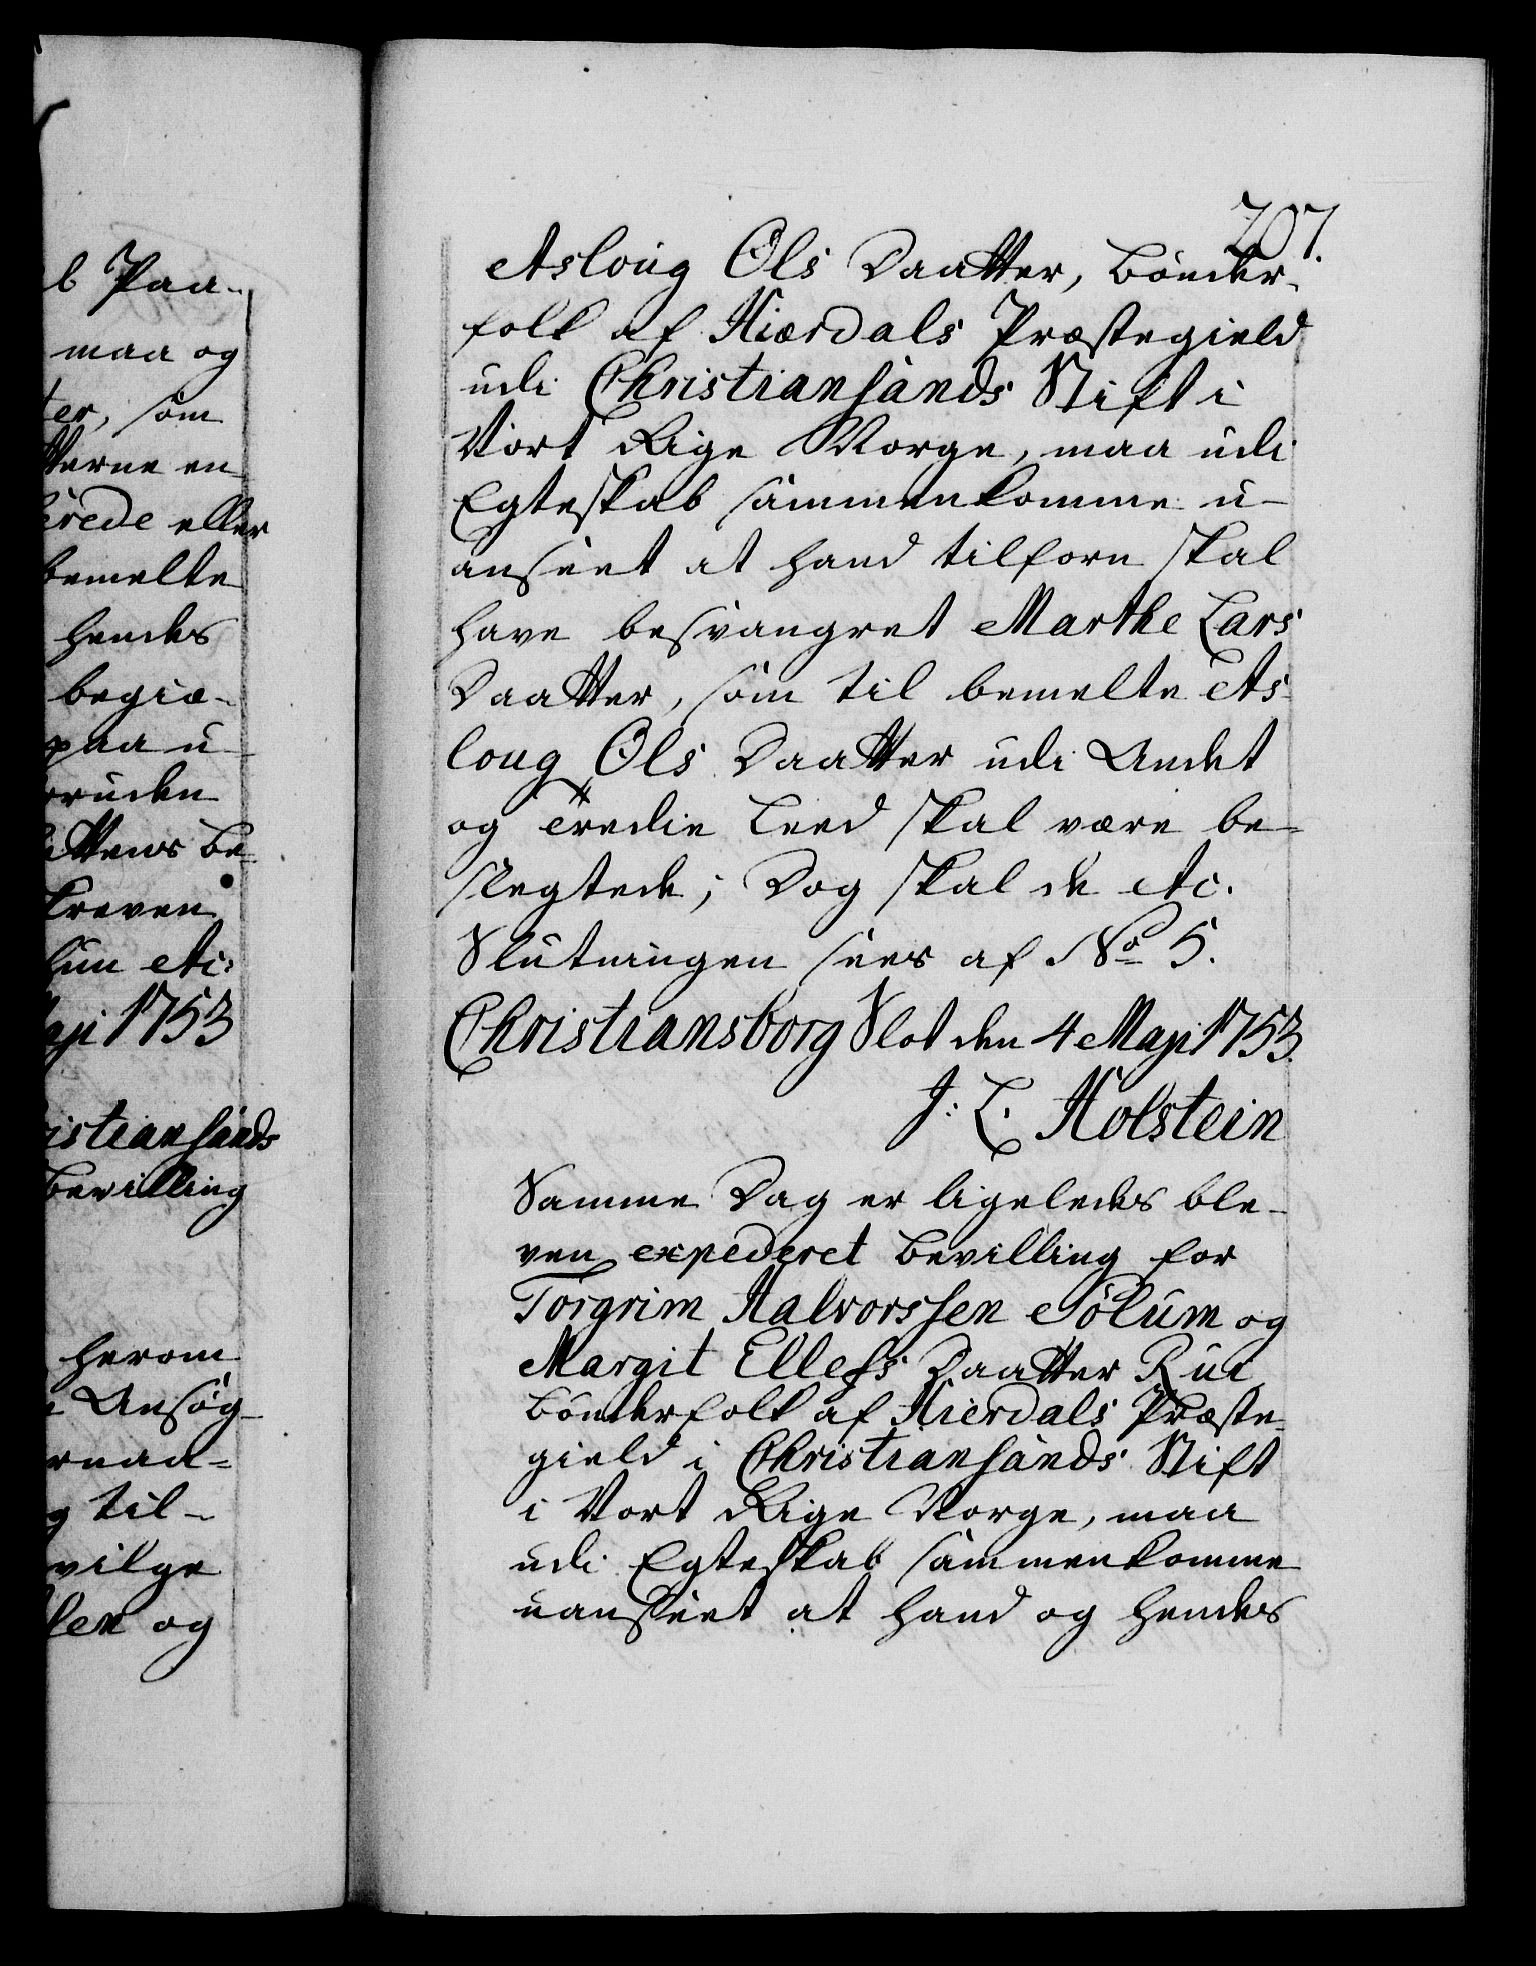 l Paa-
maa og
ter, som
terne en
irede eller
bemelte
hendes
begiæ-
paa u-
ruden
ttens be-
kreven
hun etc:
Maji 1753
istiansands
Bevilling
herom
Ansøg-
rnad=
g til-
vilge
len og
207.
Asloug Ols Daatter, Bønder-
folk af Hiærdals Præstegield
udi Christiansands Stift i
Vort Rige Norge, maa udi
Egteskab sammenkomme u-
anseet at hand tilforn skal
have besvangret Marthe Lars
Daatter, som til bemelte As-
loug Ols Daatter udi Andet
og Tredie Leed skal være be-
slegtede; Dog skal de etc.
Slutningen sees af No 5.
Christiansborg Slot den 4 Maji 1753.
J: L. Holstein
Samme Dag er ligeledes ble-
ven expederet Bevilling for
Torgrim Halvorssen Solum og
Margit Ellefs Daatter Rui
Bønderfolk af Hierdals Præste-
gield i Christiansands Stift
i Vort Rige Norge, maa
udi Egteskab sammenkomme
uanseet at hand og hendes